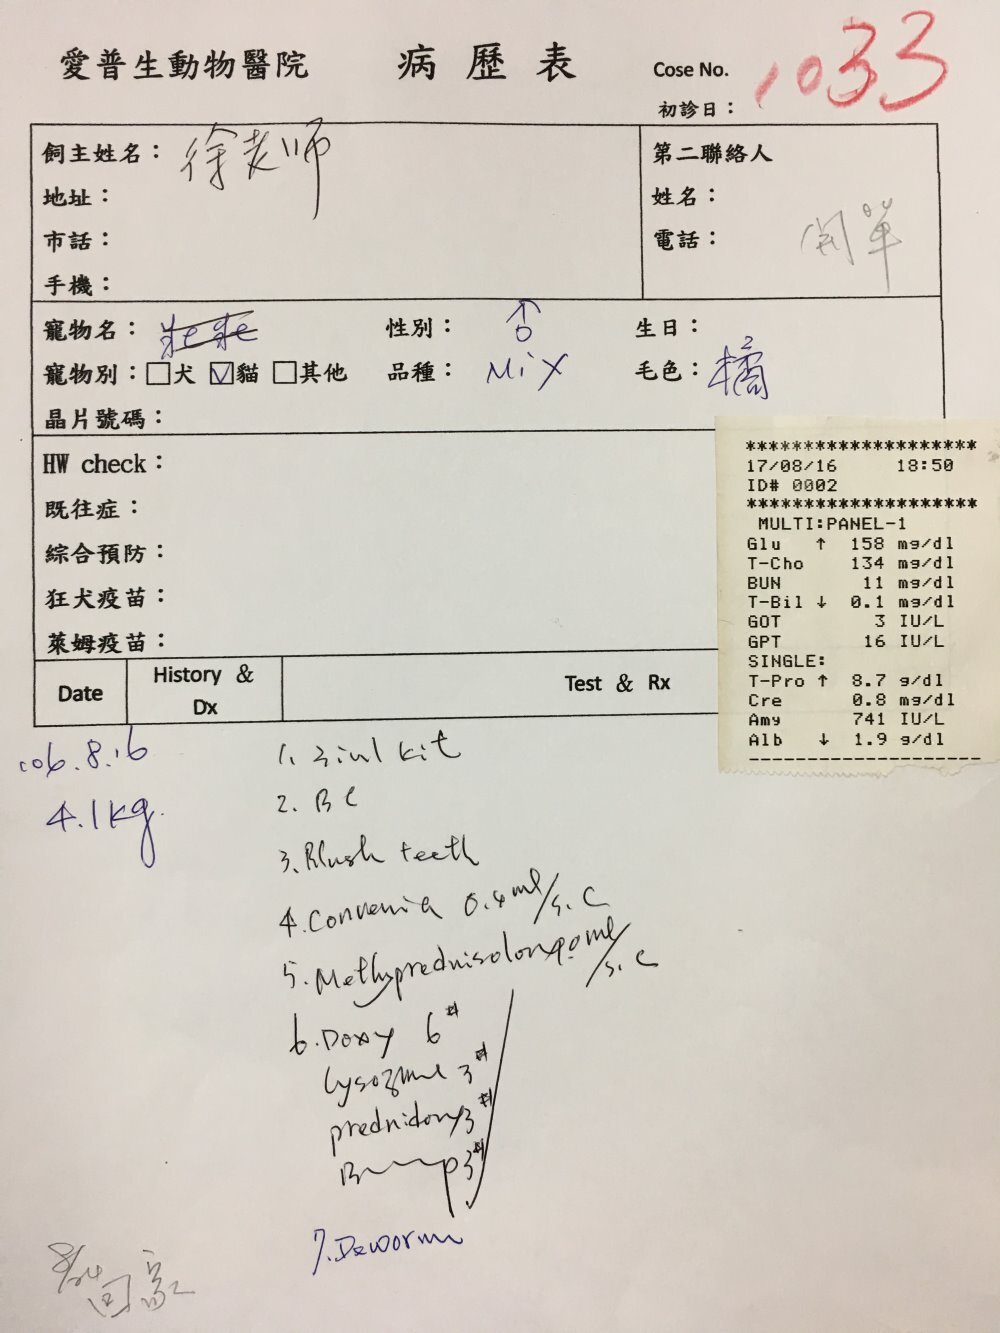 愛普生動物醫院 病歷表 Cose No. 1033
初診日：
飼主姓名：徐老师
地址：
市話：
手機：
第二聯絡人
姓名：
電話：
開單
寵物名：
性別：♂
生日：
寵物別：□犬 ☑貓 □其他
品種：Mix
毛色：橘
晶片號碼：
HW check：
既往症：
綜合預防：
狂犬疫苗：
萊姆疫苗：
********************
17/08/16 18:50
ID# 0002
********************
MULTI:PANEL-1
Glu ↑ 158 mg/dl
T-Cho 134 mg/dl
BUN 11 mg/dl
T-Bil ↓ 0.1 mg/dl
GOT 3 IU/L
GPT 16 IU/L
SINGLE:
T-Pro ↑ 8.7 g/dl
Cre 0.8 mg/dl
Amy 741 IU/L
Alb ↓ 1.9 g/dl
--------------------
Date
History & Dx
Test & Rx
106.8.16
4.1kg
1. 3in1 kit
2. BC
3. Blush teeth
4. Convenia 0.4ml/s.c
5. Methyprednisolone ml/s.c
6. Doxy 6#
Lysozyme 3#
prednidony 3#
3#
7. Deworm
8/24 回家